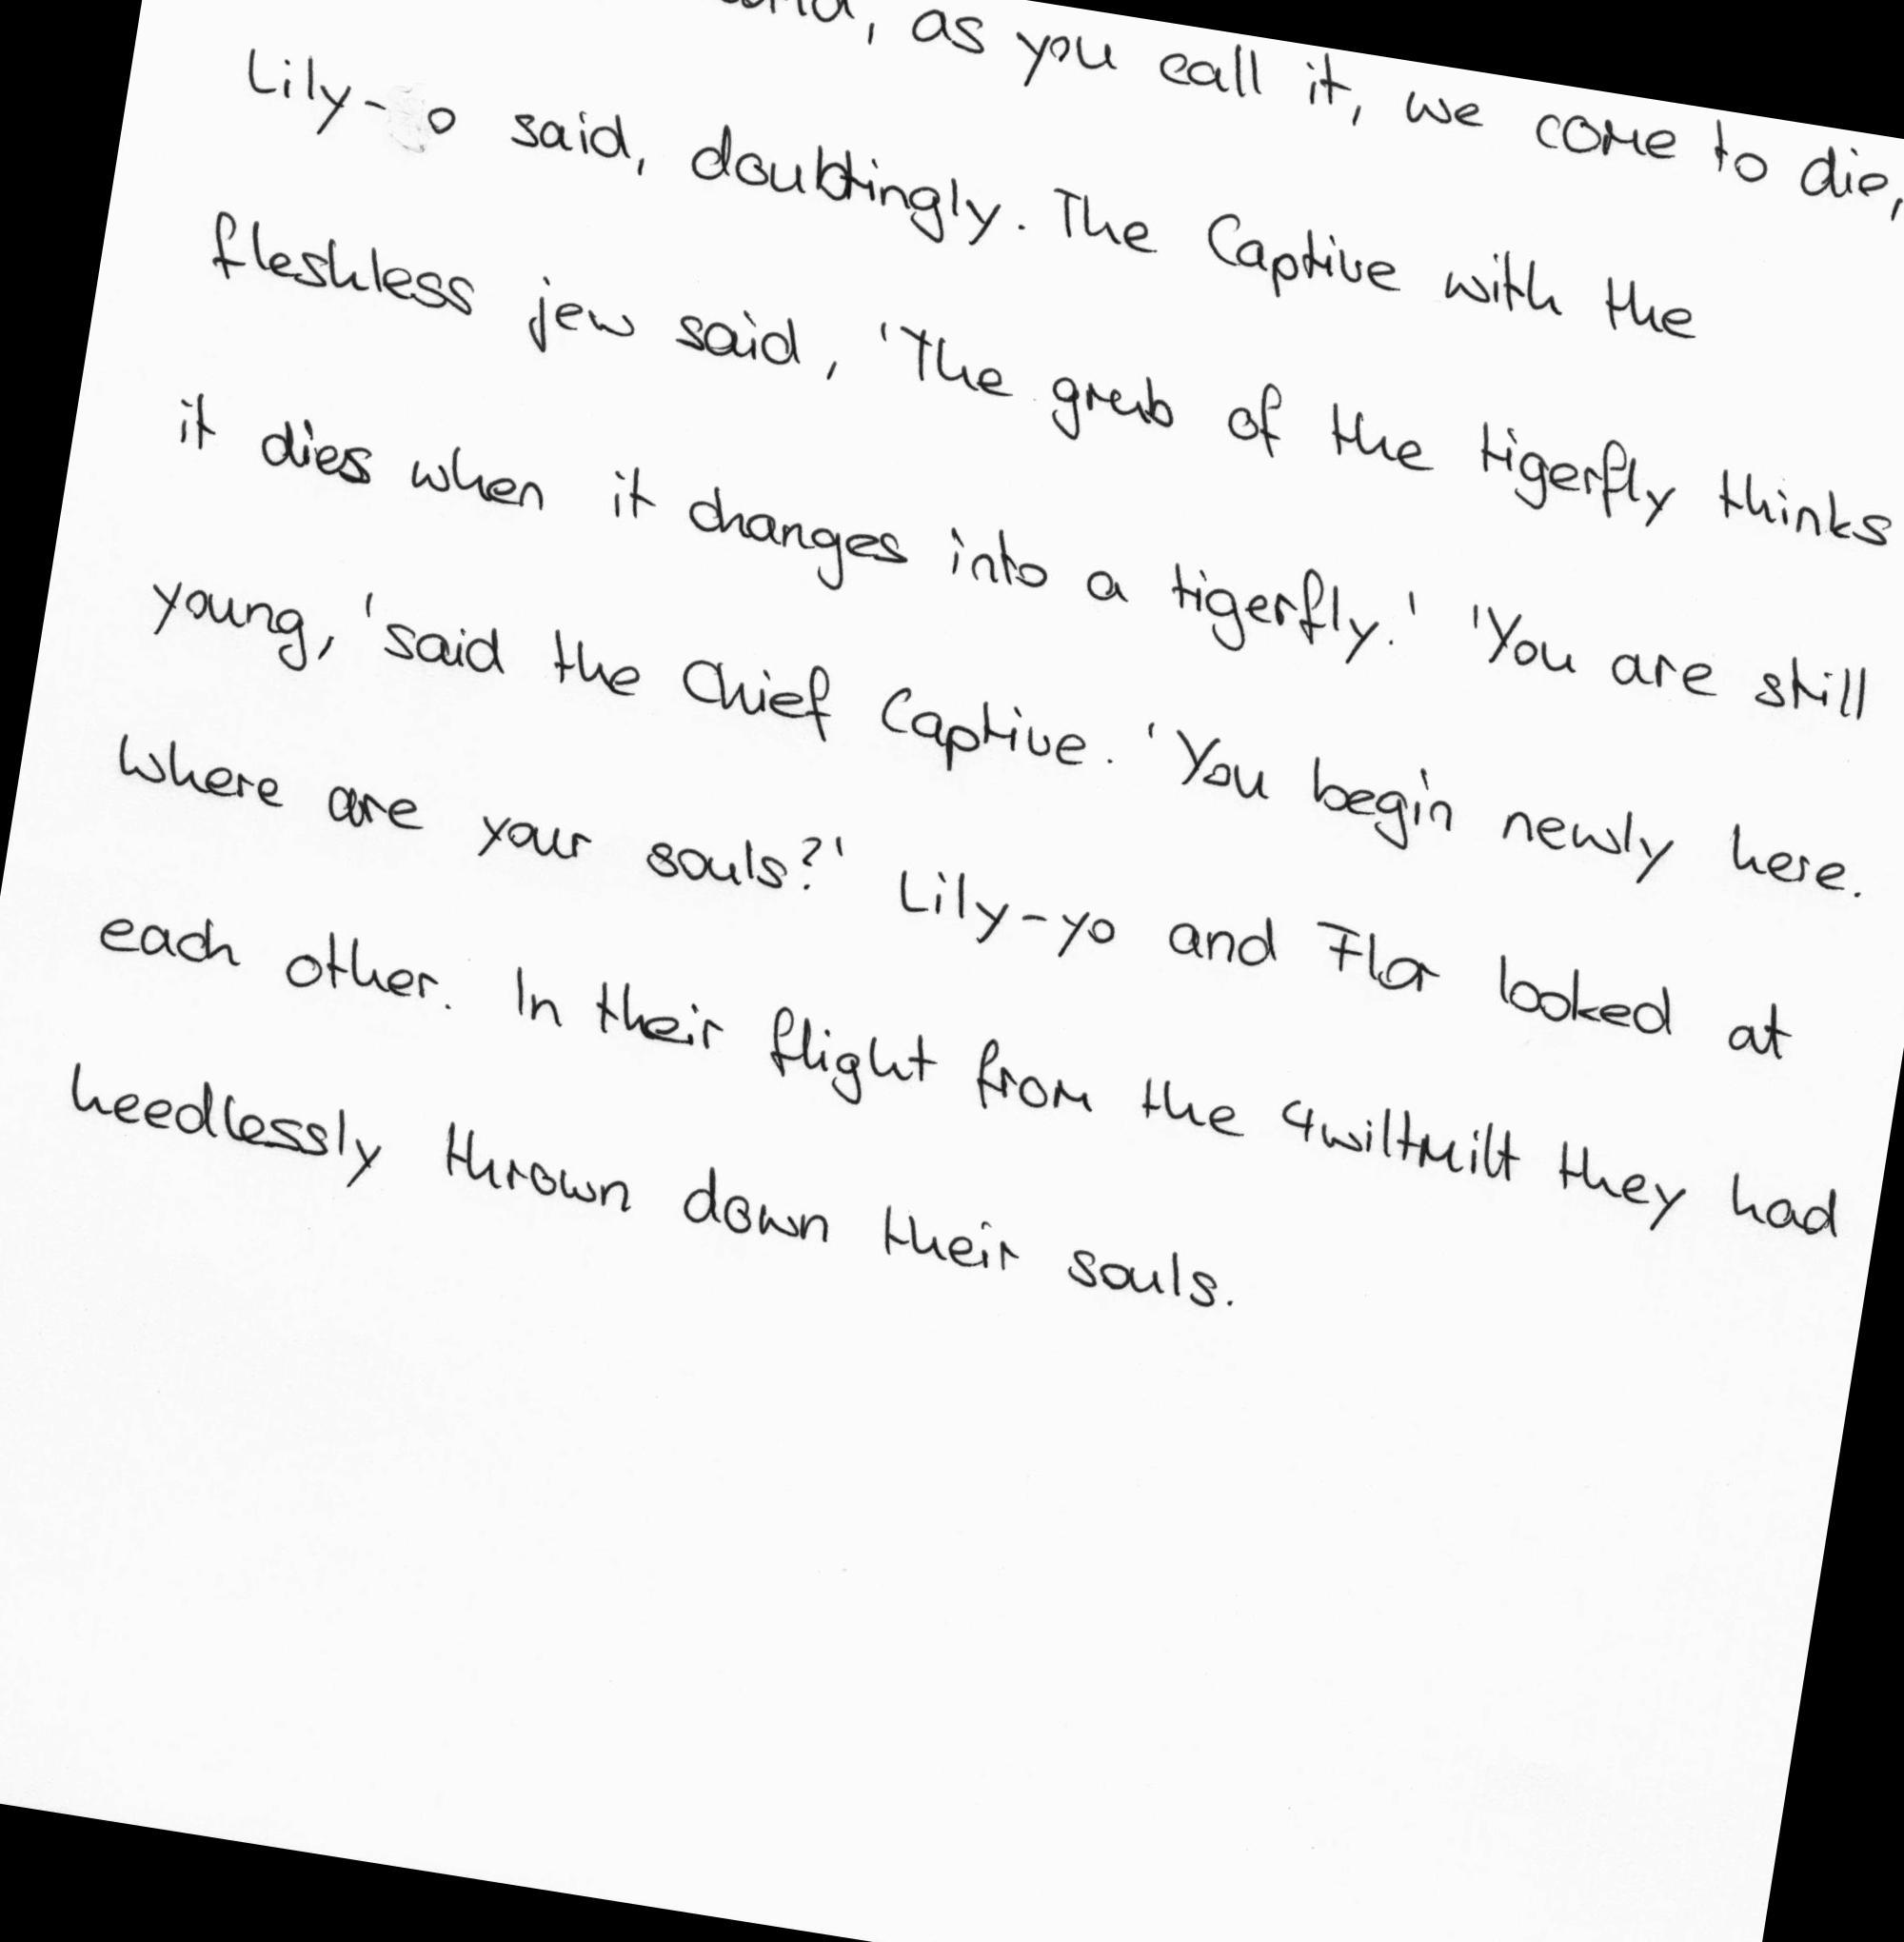 as you call it, we come to die,
Lily- o said, doubtingly. The Captive with the
fleshless jew said, 'The grub of the tigerfly thinks
it dies when it changes into a tigerfly.' 'You are still
young, 'said the Chief Captive. 'You begin newly here.
Where are your souls?' Lily-yo and Flor looked at
each other. In their flight from the 4wiltmilt they had
heedlessly thrown down their souls.